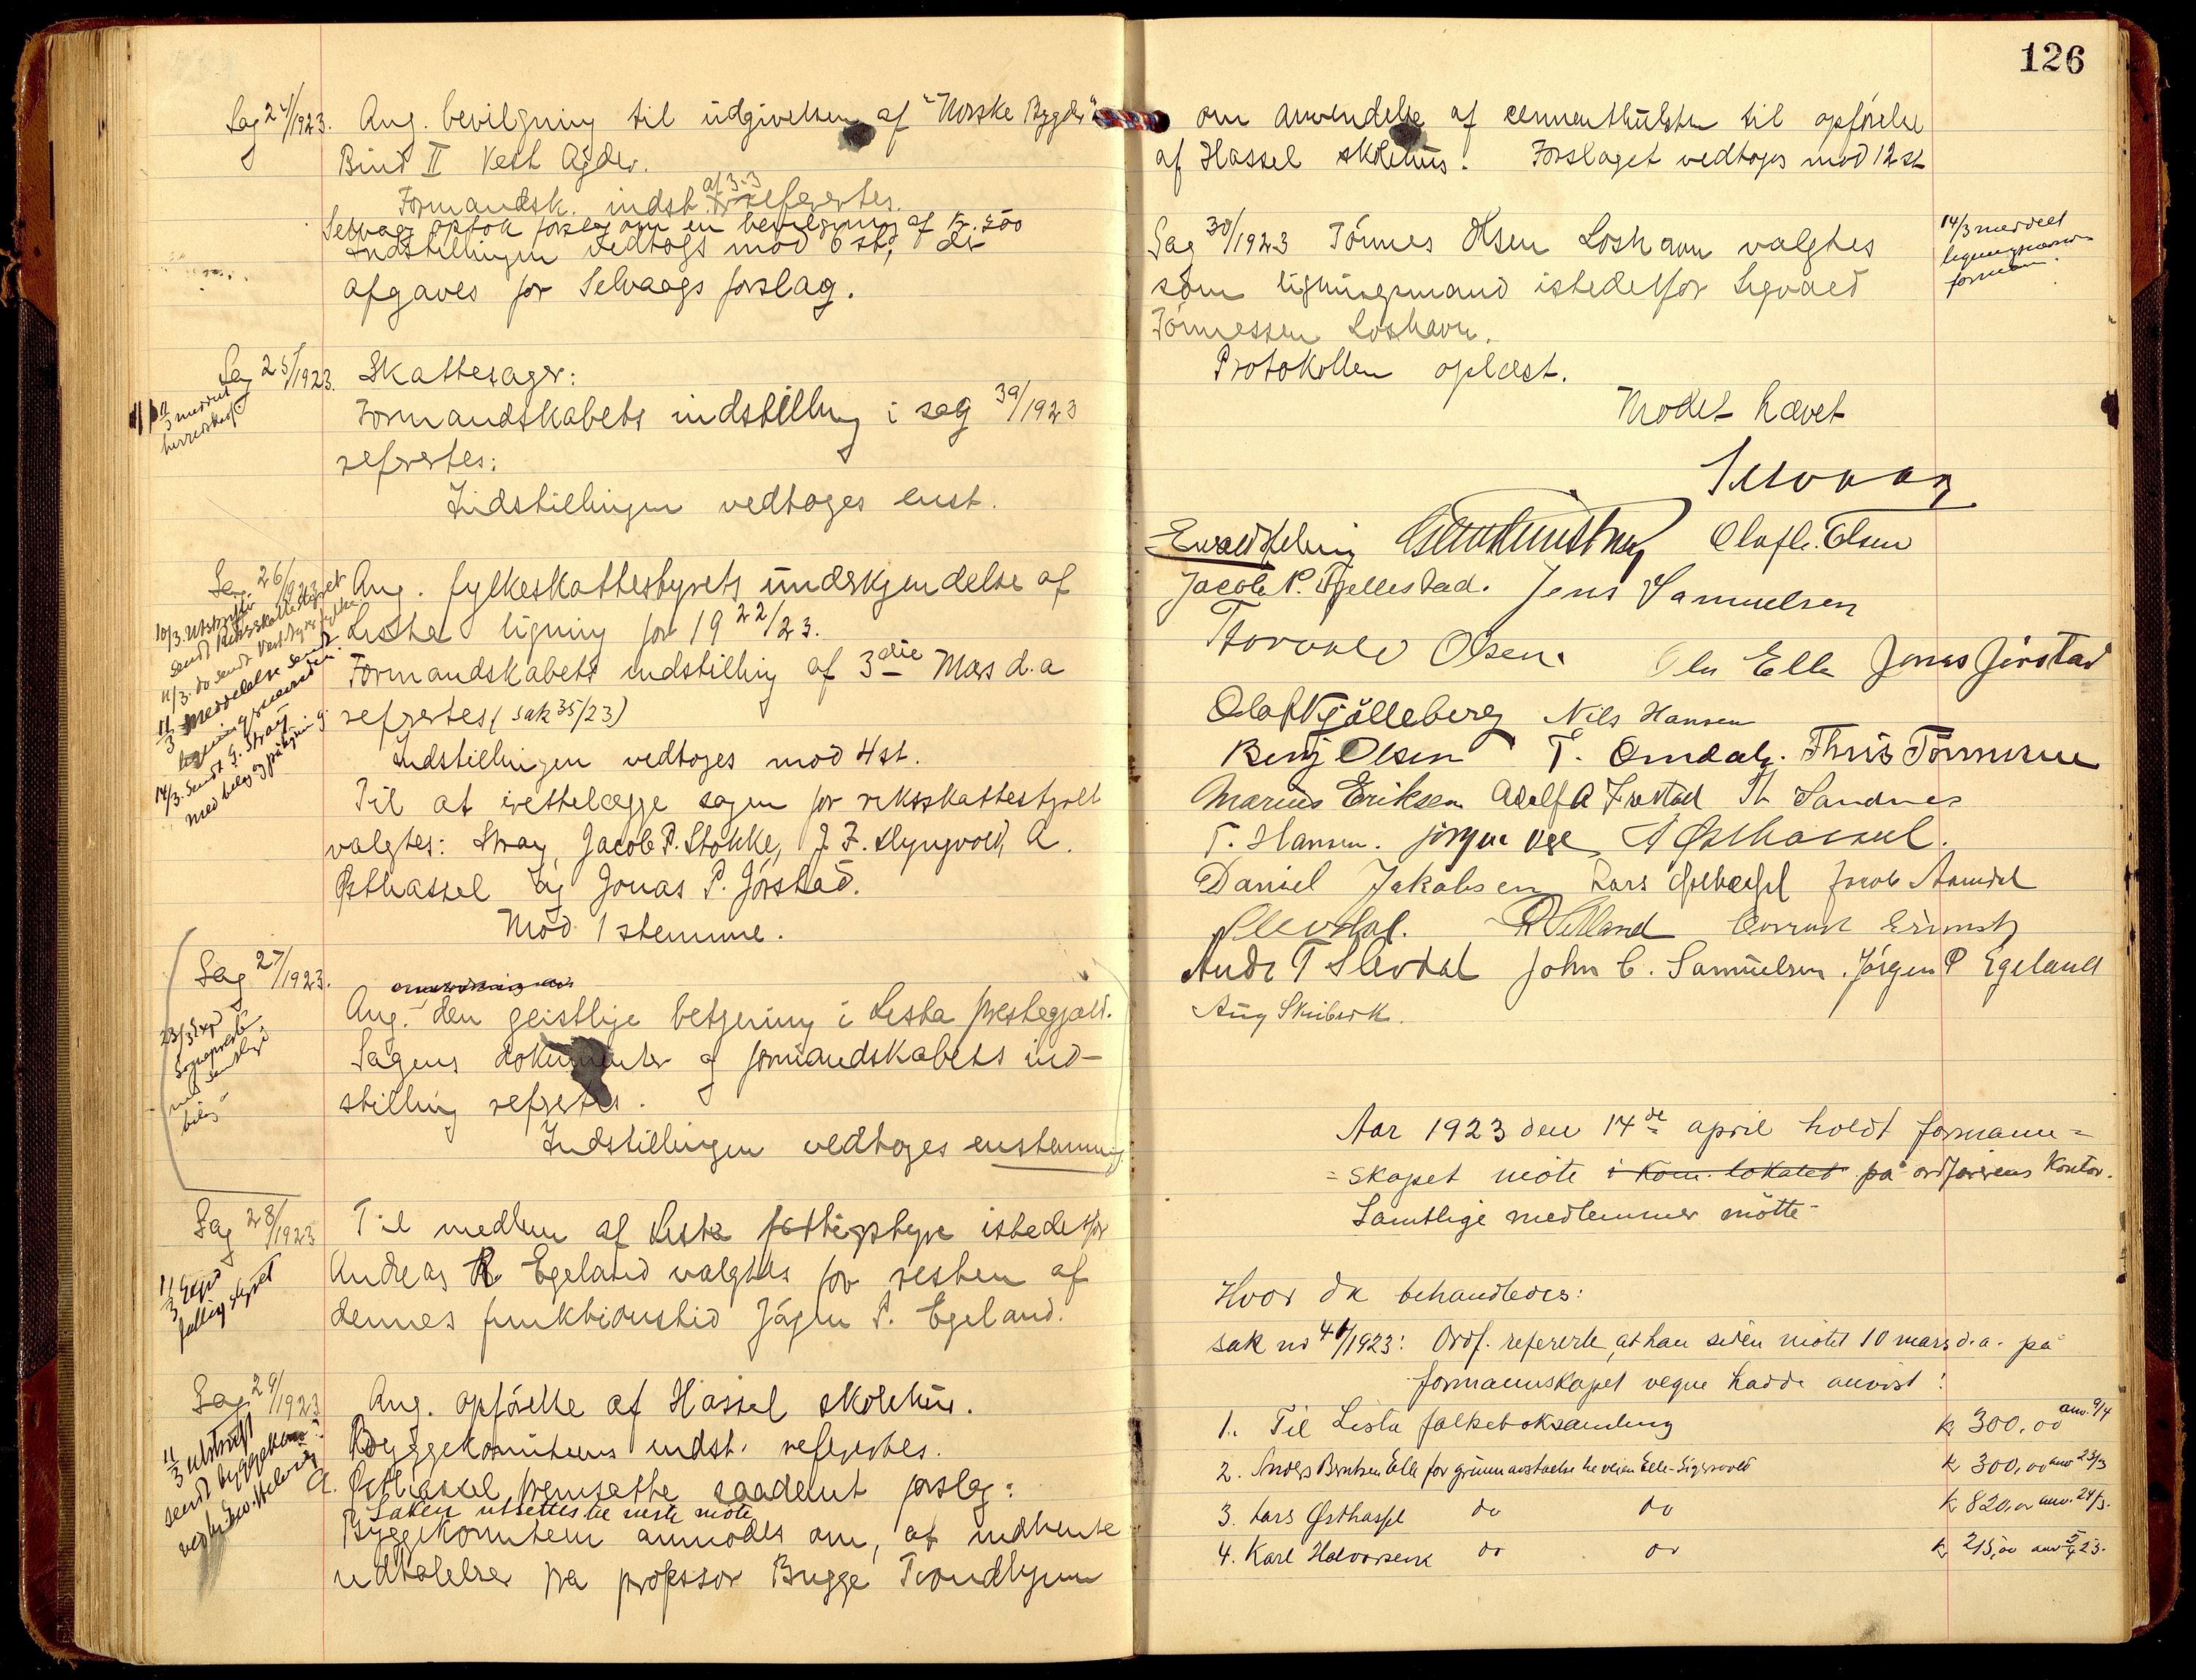 Sag 24/1923. Ang. bevilgning til udgivelsen af "Norske Bygder"
Bind II Vest Agder.
Formandsk. indst. af 3-3 refertes.
Selvaag optok forslag om en bevilgning af kr. 500
Indstillingen vedtogs mod 6 st, der
afgaves for Selvaags forslag.
Sag 25/1923. Skattesager:
Formandskabets indstilling i sag 39/1923
refertes:
Indstillingen vedtoges enst.
Sag 26/1923
10/3. Utskrift
sendt Riksskattestyret
11/3. do sendt Vest Agder fylke
11/3 meddelelse sendt
14/3. Sendt G. Stray
med bilag og påtegning
Ang. fylkesskattestyrets underkjendelse af
Lista ligning for 1922/23.
Formandskabets indstilling af 3die Mars d.a
refertes (sak 35/23)
Indstillingen vedtoges mod 4 st.
Til at irettelægge sagen for riksskattestyret
valgtes: Stray, Jacob P. Stokke, J. F. Klyngvold, A.
Østhassel og Jonas P. Jørstad.
Mod 1 stemme.
Sag 27/1923.
23/3 Exp
Sogneprest
med samtlige
bilag
Ang. den geistlige betjening i Lista prestegjæld.
Sagens dokumenter og formandskabets ind-
stilling refertes.
Indstillingen vedtoges enstemmig.
Sag 28/1923
11/3 Exp
fattigstyret
Til medlem af Lista fattigstyre istedetfor
Andreas R. Egeland valgtes for resten af
dennes funktionstid Jørgen P. Egeland.
Sag 29/1923
11/3 utskrift
sendt byggekom
ved Ew. Helvig
Ang. opførelse af Hassel skolehus.
Byggekomiteens indst. refertes.
A. Østhassel fremsatte saadant forslag:
Saken utsettes til neste møte
Byggekomiteen anmodes om, at indhente
udtalelse fra professor Bugge Trondhjem
126
om anvendelse af cementhulsten til opførelse
af Hassel skolehus. Forslaget vedtoges mod 12 st
Sag 30/1923 Tønnes Olsen Loshavn valgtes
som ligningsmand istedetfor Sigvald
Tønnessen Loshavn.
14/3 meddelt
ligningsnevn
formann.
Protokollen oplæst.
Mødet hævet
Selvaag
Ewald Helvig Olaf L. Olsen
Jacob P. Fjellestad. Jens Samuelsen
Torvald Olsen. Ole Elle Jonas Jørstad
Olaf Kjølleberg Nils Hansen
Benj Olsen T. Omdal. Thris Tønnesen
Marius Eriksen Adolf A Frestad Th Sandnes
T. Hansen. Jørgen Ege A Østhassel.
Daniel Jakobsen Lars Østhassel Jacob Aamdal
Slevdal.
Andr T Slevdal John C. Samuelsen. Jørgen P Egeland
Aug Skeibrok.
Aar 1923 den 14de april holdt formann=
=skapet møte i Kom. lokalet på ordførerens Kontor.
Samtlige medlemmer møtte-
Hvor da behandledes:
sak no 41/1923: Ordf. refererte, at han siden møtet 10 mars d.a. på
formannskapet vegne hadde anvist:
1. Til Lista folkeboksamling kr 300,00 anv. 9/4
2. Anders Berntsen Elle for grunnavstaelse til veien Elle-Sigersvold kr 300,00 anv 23/3
3. Lars Østhassel do do kr 820,00 anv. 24/3.
4. Karl Halvorsen do do kr 215,00 anv 5/4 23.